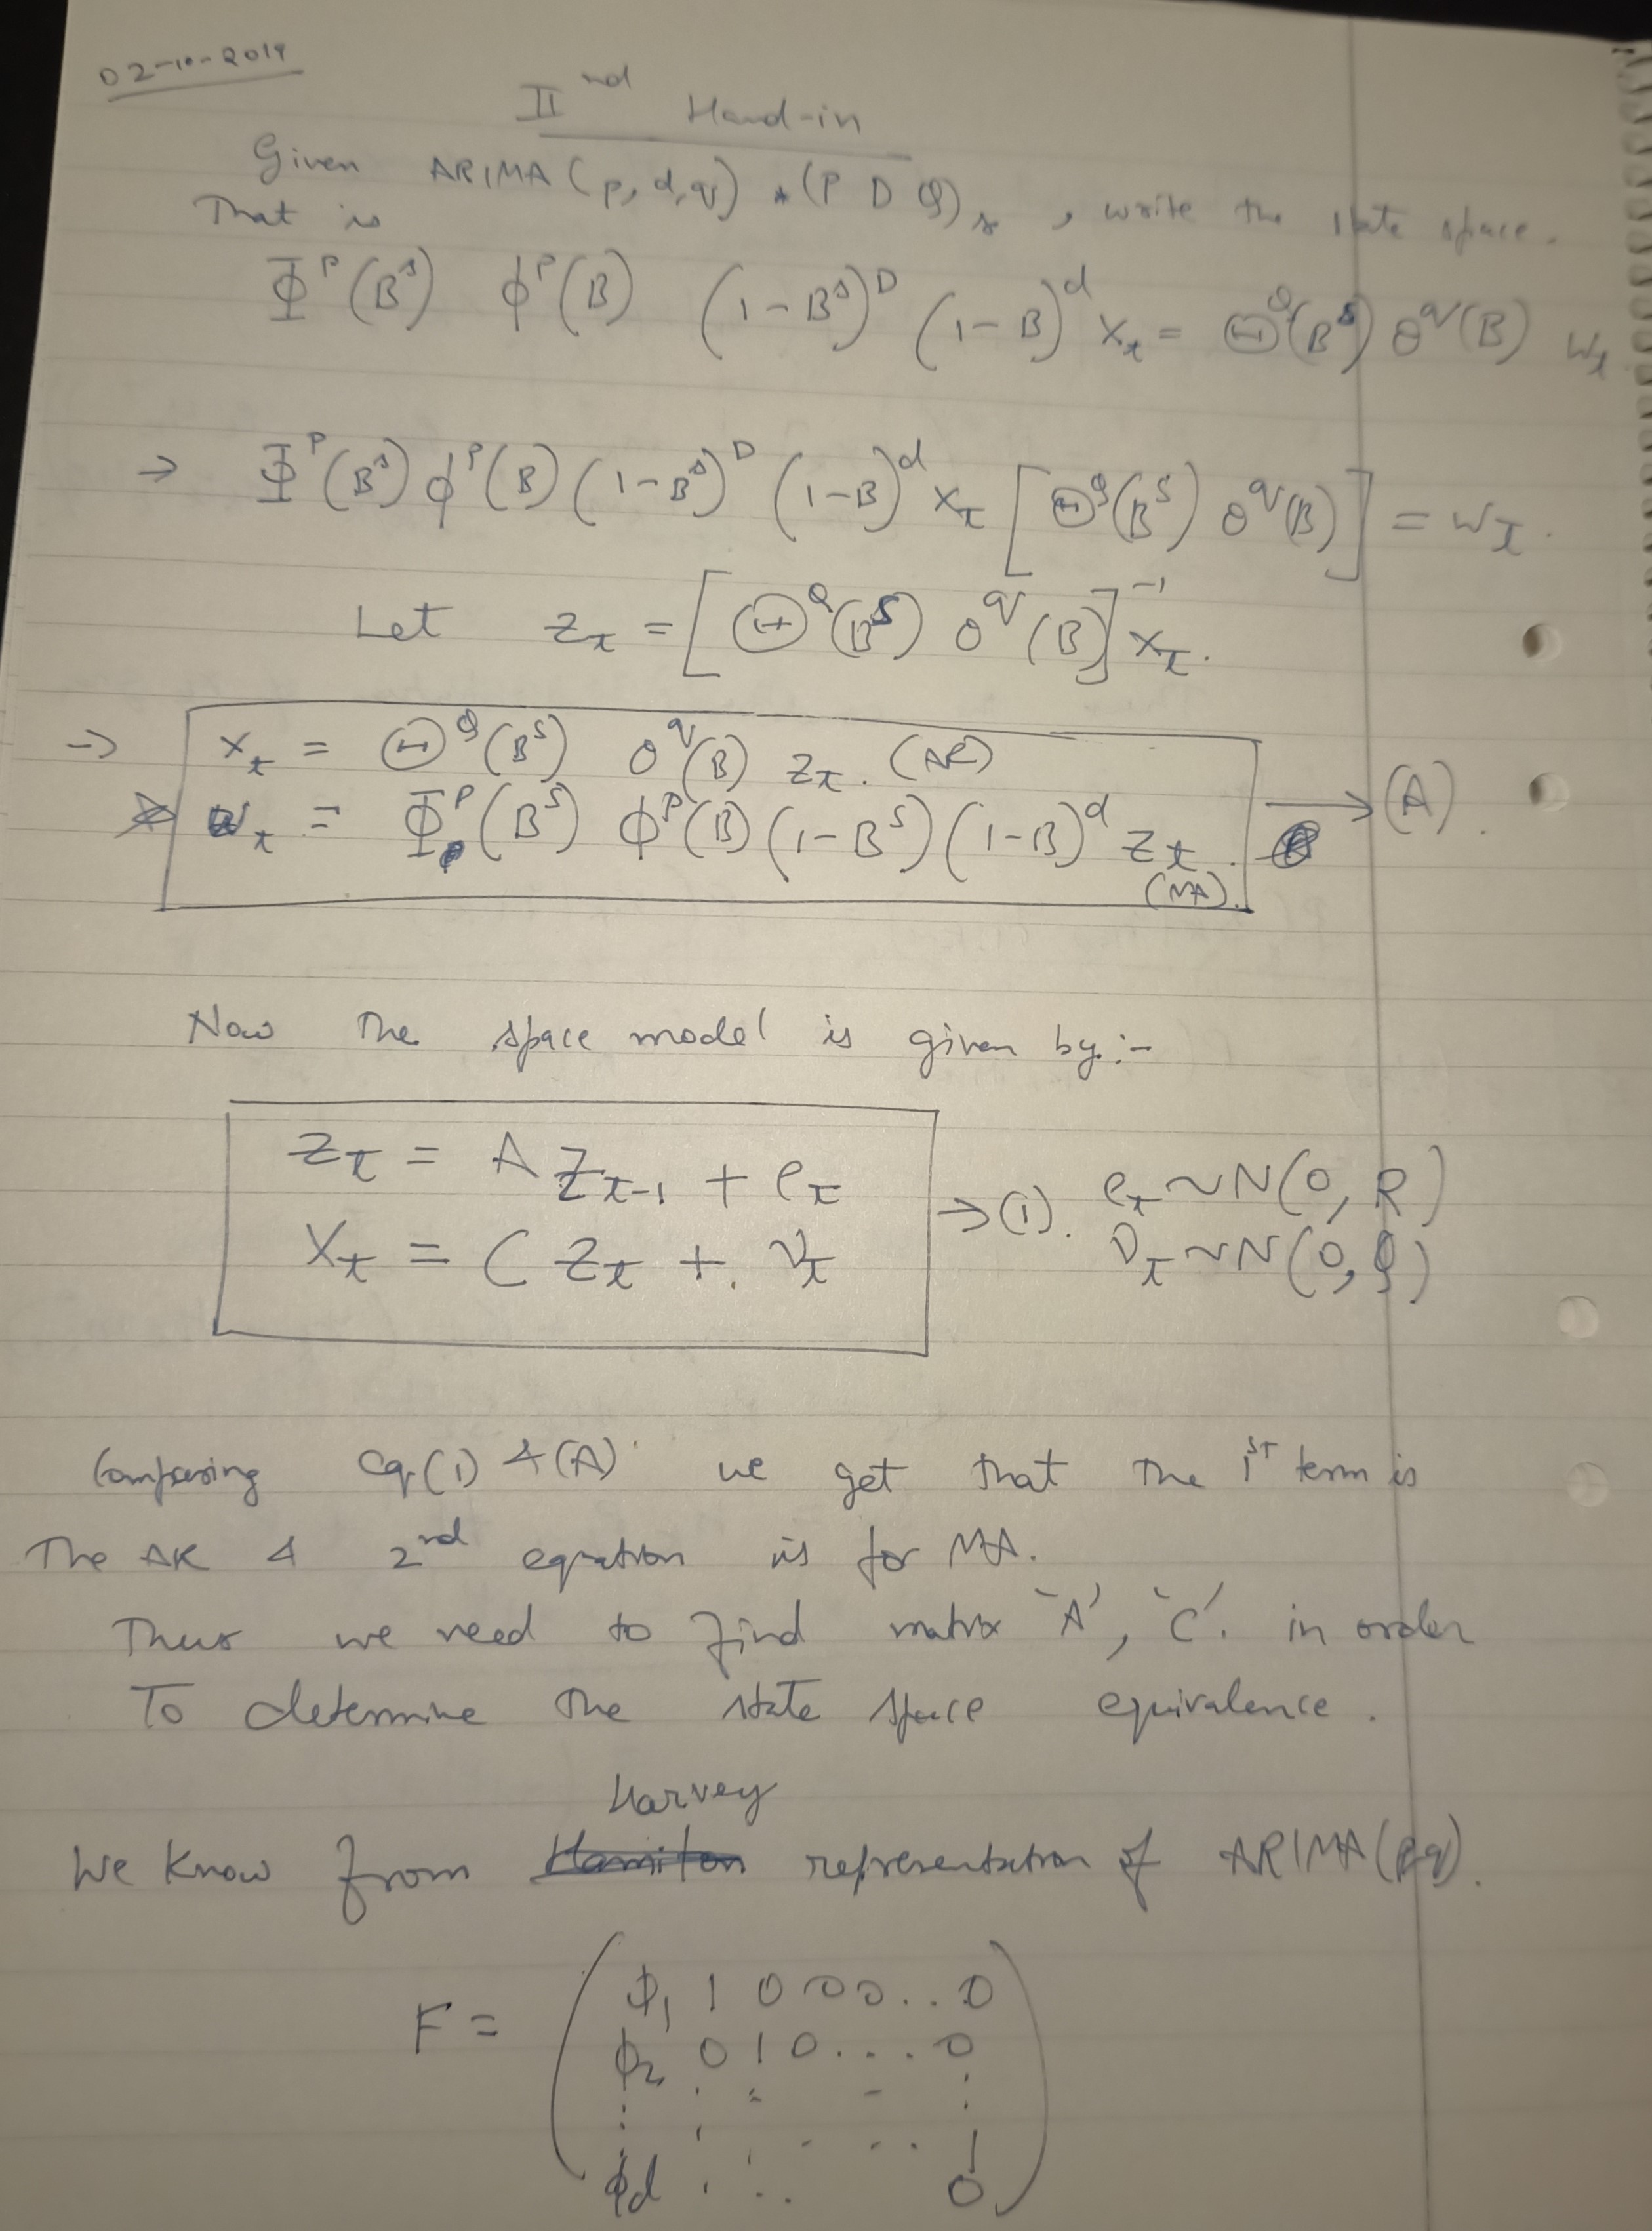 02-10-2019
IInd Hand-in
Given ARIMA(p,d,q) * (P D Q)s, write the state space.
That is
Φ^P(B^s) ϕ^p(B) (1-B^s)^D (1-B)^d x_t = Θ^Q(B^s) θ^q(B) w_t
→ Φ^P(B^s) ϕ^p(B) (1-B^s)^D (1-B)^d x_t [Θ^Q(B^s) θ^q(B)] = w_t.
Let z_t = [Θ^Q(B^s) θ^q(B)]^-1 x_t.
→ x_t = Θ^Q(B^s) θ^q(B) z_t. (AR)
w_t = Φ^P(B^s) ϕ^p(B) (1-B^s) (1-B)^d z_t. → (A).
(MA).
Now the space model is given by:-
z_t = A z_t-1 + e_t → (1). e_t ~ N(0, R)
X_t = C z_t + ν_t ν_t ~ N(0, Q)
Comparing eq(1) & (A) we get that the 1st term is
the AR & 2nd equation is for MA.
Thus we need to find matrix 'A', 'C'. in order
To determine the state space equivalence.
Harvey
We know from Hamilton representation of ARIMA(p,q).
F = ( ϕ1 1 0 0 0 0 . . 0
ϕ2 0 1 0 . . . 0
: . : - :
: . . . . . 1
ϕd . : . . 0 )